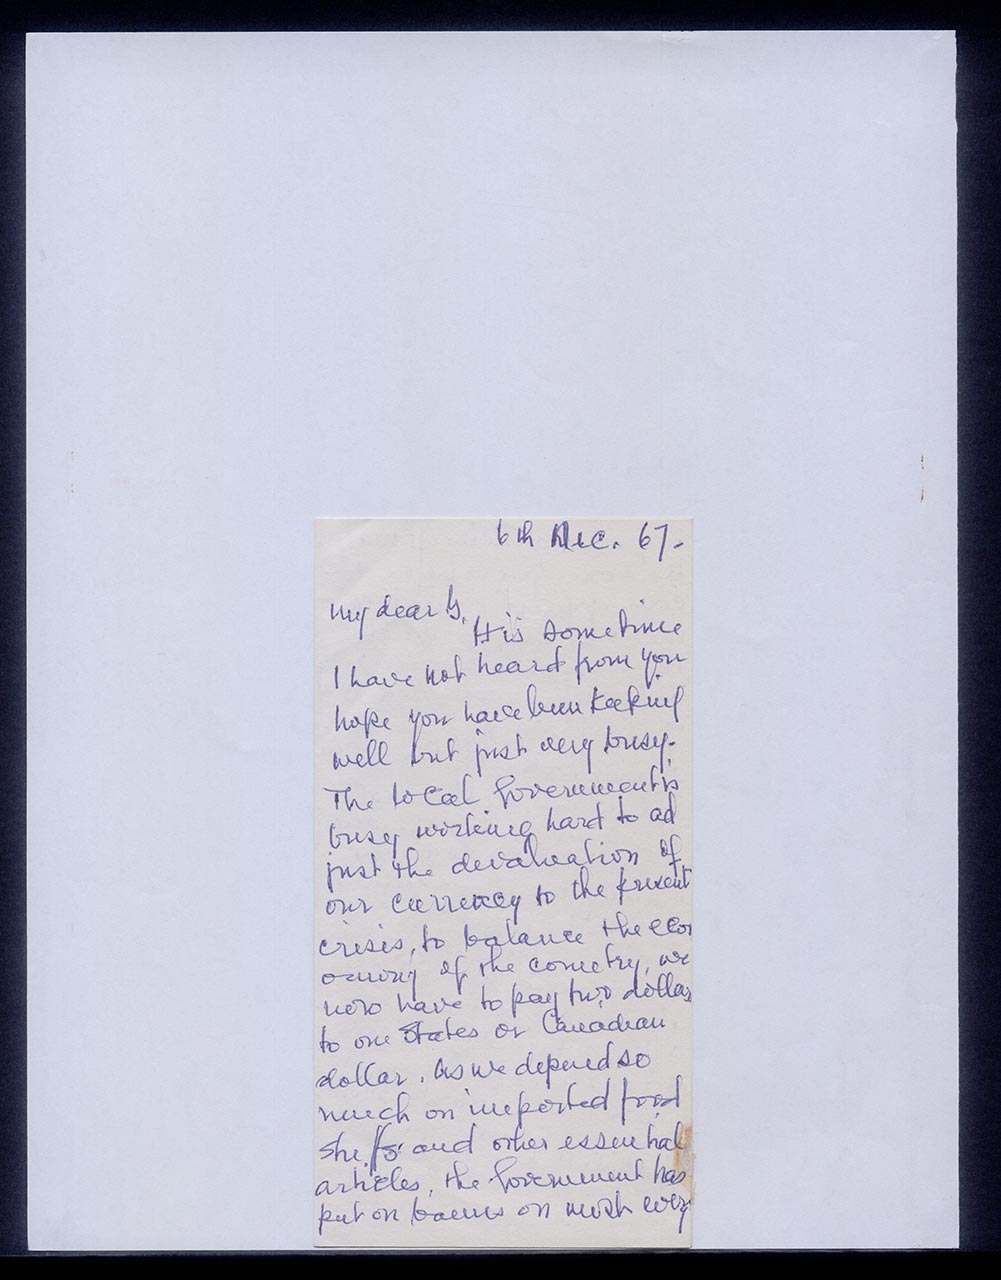 6th Dec. 67.
My dear G,
It is sometime
I have not heard from you
hope you have been keeping
well but just very busy.
The local Government is
busy working hard to ad
just the devaluation of
our currency to the present
crisis, to balance the eco
onomy of the country, we
now have to pay two dollar
to one States or Canadian
dollar. As we depend so
much on imported food
stuffs and other essential
articles, the Government has
put on on most every